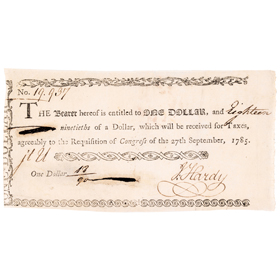 No. 19.937
THE Bearer hereof is entitled to ONE DOLLAR, and Eighteen
ninetieths of a Dollar, which will be received for Taxes,
agreeably to the Requisition of Congress of the 27th September, 1785.
One Dollar 18/90
Hardy